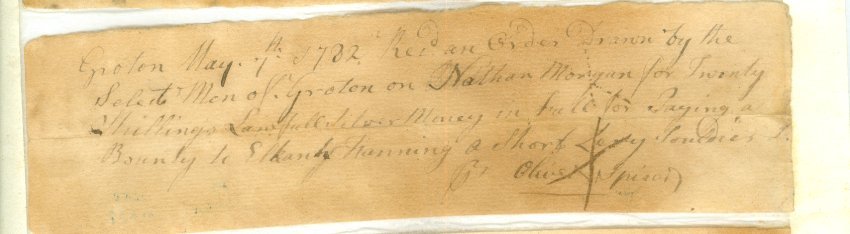 Groton May. 7th. 1782, Recd an Order Drawn by the
Select Men of Groton on Nathan Morgan for Twenty
Shillings Lawfull Silver Money in full for Paying a
Bounty to Elkanh Fanning a Short Levy Souldier
Pr Oliver Spicer